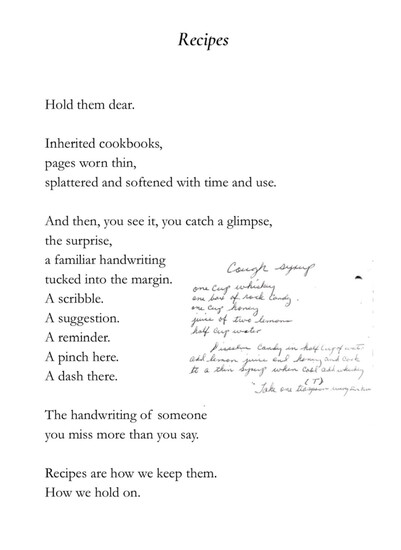 Recipes
Hold them dear.
Inherited cookbooks,
pages worn thin,
splattered and softened with time and use.
And then, you see it, you catch a glimpse,
the surprise,
a familiar handwriting
tucked into the margin.
A scribble.
A suggestion.
A reminder.
A pinch here.
A dash there.
Cough syrup
one cup whiskey
one box of rock candy.
one cup honey
juice of two lemons
half cup water
Dissolve candy in half cup of
add lemon juice and honey and cook
to a thin syrup when cold add whiskey
(T)
Take one teaspoon every
The handwriting of someone
you miss more than you say.
Recipes are how we keep them.
How we hold on.